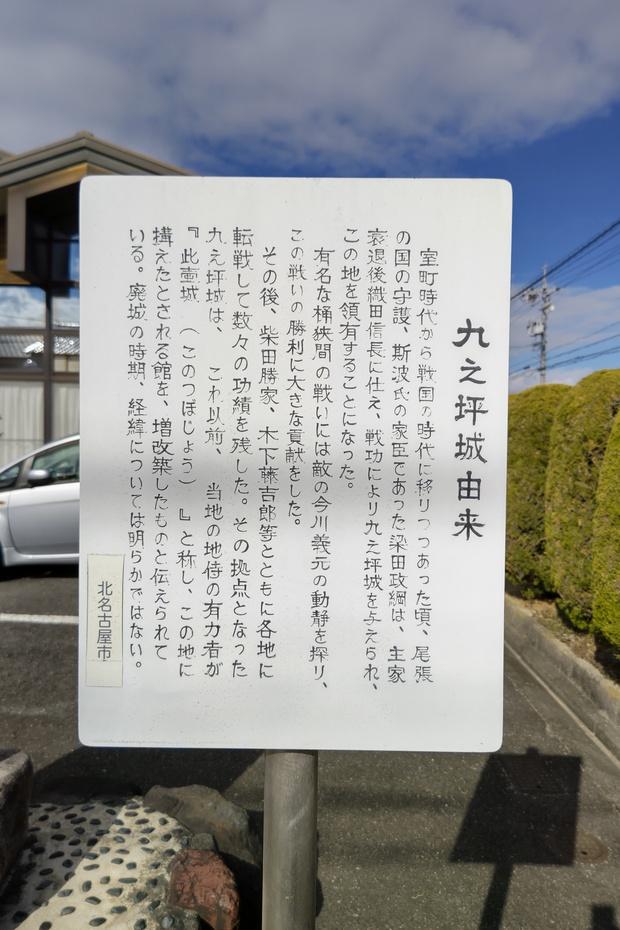 九之坪城由来
室町時代から戦国の時代に移りつつあった頃、尾張
の国の守護、斯波氏の家臣であった梁田政綱は、主家
衰退後織田信長に仕え、戦功により九之坪城を与えられ、
この地を領有することになった。
有名な桶狭間の戦いには敵の今川義元の動静を探り、
この戦いの勝利に大きな貢献をした。
その後、柴田勝家、木下藤吉郎等とともに各地に
転戦して数々の功績を残した。その拠点となった
九之坪城は、これ以前、当地の地侍の有力者が
『此壷城(このつぼじょう)』と称し、この地に
構えたとされる館を、増改築したものと伝えられて
いる。廃城の時期、経緯については明らかではない。
北名古屋市